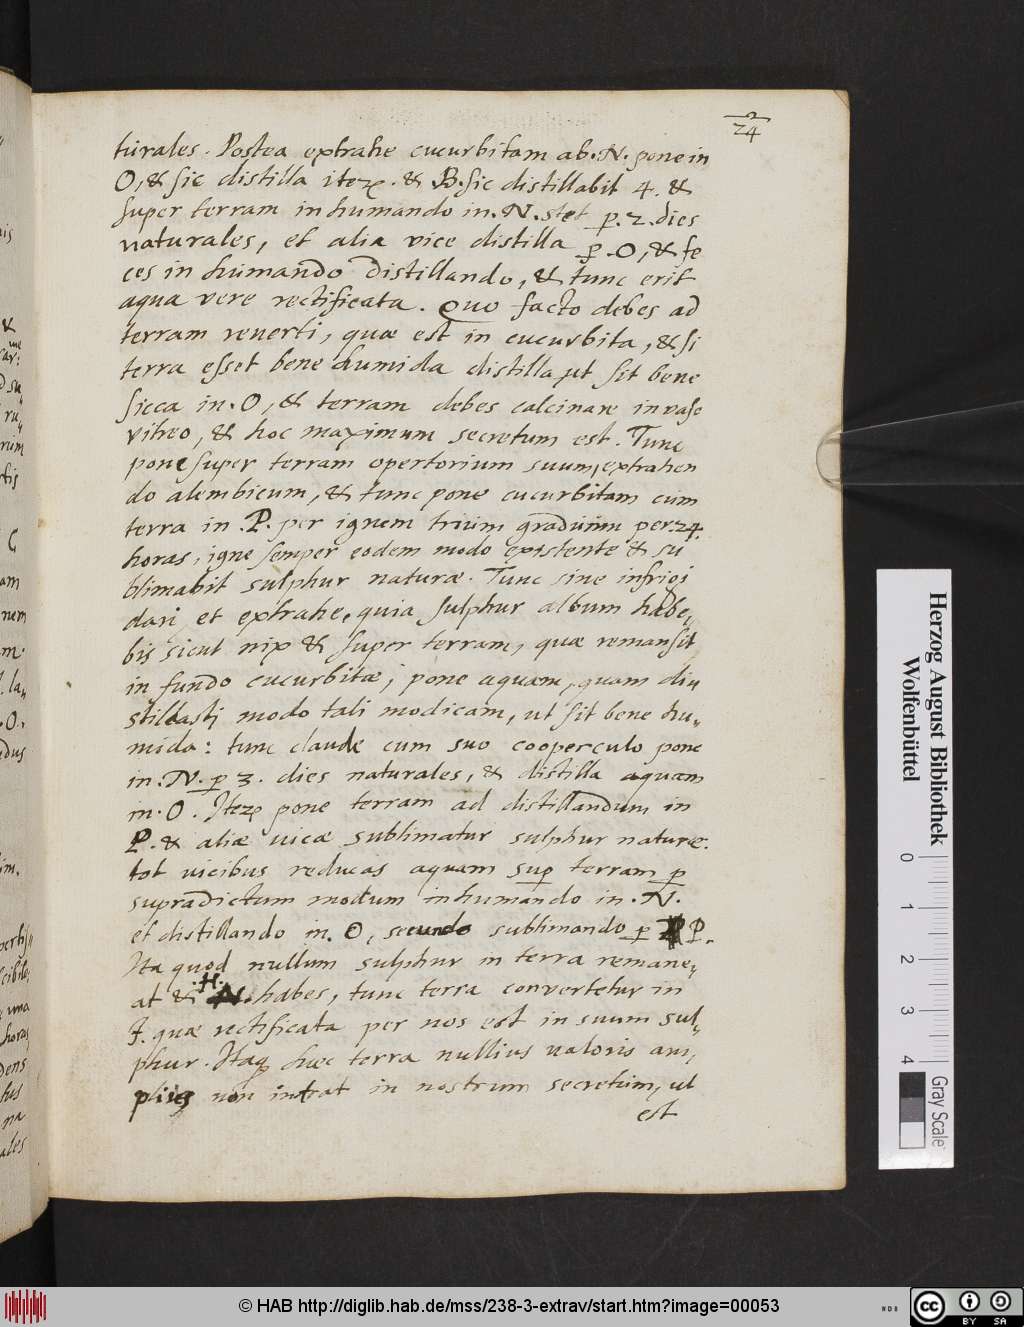 24
turales. Postea extrahe cucurbitam ab. N. pone in
O, & sic distilla iteꝝ. & B. sic distillabit 4. &
super terram inhumando in. N. stet p. 2. dies
naturales, et alia vice distilla p. O, & fe
ces inhumando distillando, & tunc erit
aqua vere rectificata. Quo facto debes ad
terram reuerti, quæ est in cucurbita, & si
terra esset bene humida distilla, ut sit bene
sicca in. O, & terram debes calcinare in vase
vitreo, & hoc maximum secretum est. Tunc
pone super terram opertorium suum, extrahen
do alembicum, & tunc pone cucurbitam cum
terra in. P. per ignem trium graduum per. 24.
horas, igne semper eodem modo existente & su
blimabit sulphur naturæ. Tunc sine infrigi
dari et extrahe, quia sulphur album habe„
bis sicut nix & super terram, quæ remansit
in fundo cucurbitæ, pone aquam, quam di„
stillasti modo tali modicam, ut sit bene hu„
mida: tunc claude cum suo cooperculo pone
in. N. p 3. dies naturales, & distilla aquam
in. O. Iteꝝ pone terram ad distillandum in
P. & aliæ vicæ sublimatur sulphur naturæ.
tot vicibus reducas aquam sup terram p
supradictum modum inhumando in. N.
et distillando in. O, secundo sublimando p P.
Ita quod nullum sulphur in terra remane„
at & .H. habes, tunc terra convertetur in
I. quæ rectificata per nos est in suum sul„
phur. Itaq hæc terra nullius valoris am„
plius non intrat in nostrum secretum, ut
est
Herzog August Bibliothek
Wolfenbüttel
0 1 2 3 4
Gray Scale
© HAB http://diglib.hab.de/mss/238-3-extrav/start.htm?image=00053
cc BY SA